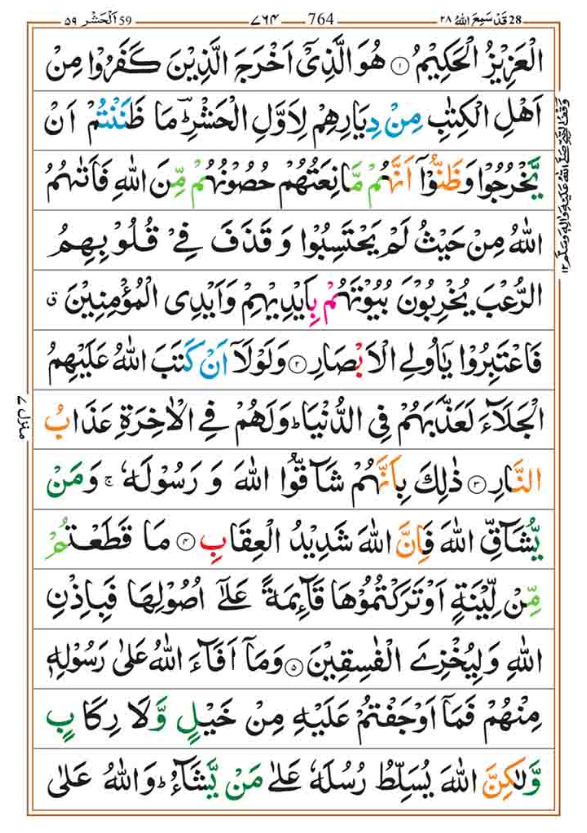 28 قَدْ سَمِعَ اللهُ ٢٨ 764 ٧٦٤ 59 اَلْحَشْر ٥٩
الْعَزِيْزُ الْحَكِيْمُ ١ هُوَ الَّذِيْۤ اَخْرَجَ الَّذِيْنَ كَفَرُوْا مِنْ
اَهْلِ الْكِتٰبِ مِنْ دِيَارِهِمْ لِاَوَّلِ الْحَشْرِؔ مَا ظَنَنْتُمْ اَنْ
يَّخْرُجُوْا وَظَنُّوْۤا اَنَّهُمْ مَّانِعَتُهُمْ حُصُوْنُهُمْ مِّنَ اللهِ فَاَتٰىهُمُ
اللهُ مِنْ حَيْثُ لَمْ يَحْتَسِبُوْا وَقَذَفَ فِيْ قُلُوْبِهِمُ
الرُّعْبَ يُخْرِبُوْنَ بُيُوْتَهُمْ بِاَيْدِيْهِمْ وَاَيْدِى الْمُؤْمِنِيْنَ ق
فَاعْتَبِرُوْا يٰۤاُولِى الْاَبْصَارِ ٢ وَلَوْلَاۤ اَنْ كَتَبَ اللهُ عَلَيْهِمُ
الْجَلَآءَ لَعَذَّبَهُمْ فِى الدُّنْيَا ؕ وَلَهُمْ فِى الْاٰخِرَةِ عَذَابُ
النَّارِ ٣ ذٰلِكَ بِاَنَّهُمْ شَآقُّوا اللهَ وَ رَسُوْلَهٗ ۚ وَمَنْ
يُّشَآقِّ اللهَ فَاِنَّ اللهَ شَدِيْدُ الْعِقَابِ ٤ مَا قَطَعْتُمْ
مِّنْ لِّيْنَةٍ اَوْ تَرَكْتُمُوْهَا قَآئِمَةً عَلٰٓى اُصُوْلِهَا فَبِاِذْنِ
اللهِ وَلِيُخْزِيَ الْفٰسِقِيْنَ ٥ وَمَاۤ اَفَآءَ اللهُ عَلٰى رَسُوْلِهٖ
مِنْهُمْ فَمَاۤ اَوْجَفْتُمْ عَلَيْهِ مِنْ خَيْلٍ وَّلَا رِكَابٍ
وَّلٰكِنَّ اللهَ يُسَلِّطُ رُسُلَهٗ عَلٰى مَنْ يَّشَآءُ ؕ وَاللهُ عَلٰى
منزل ٧